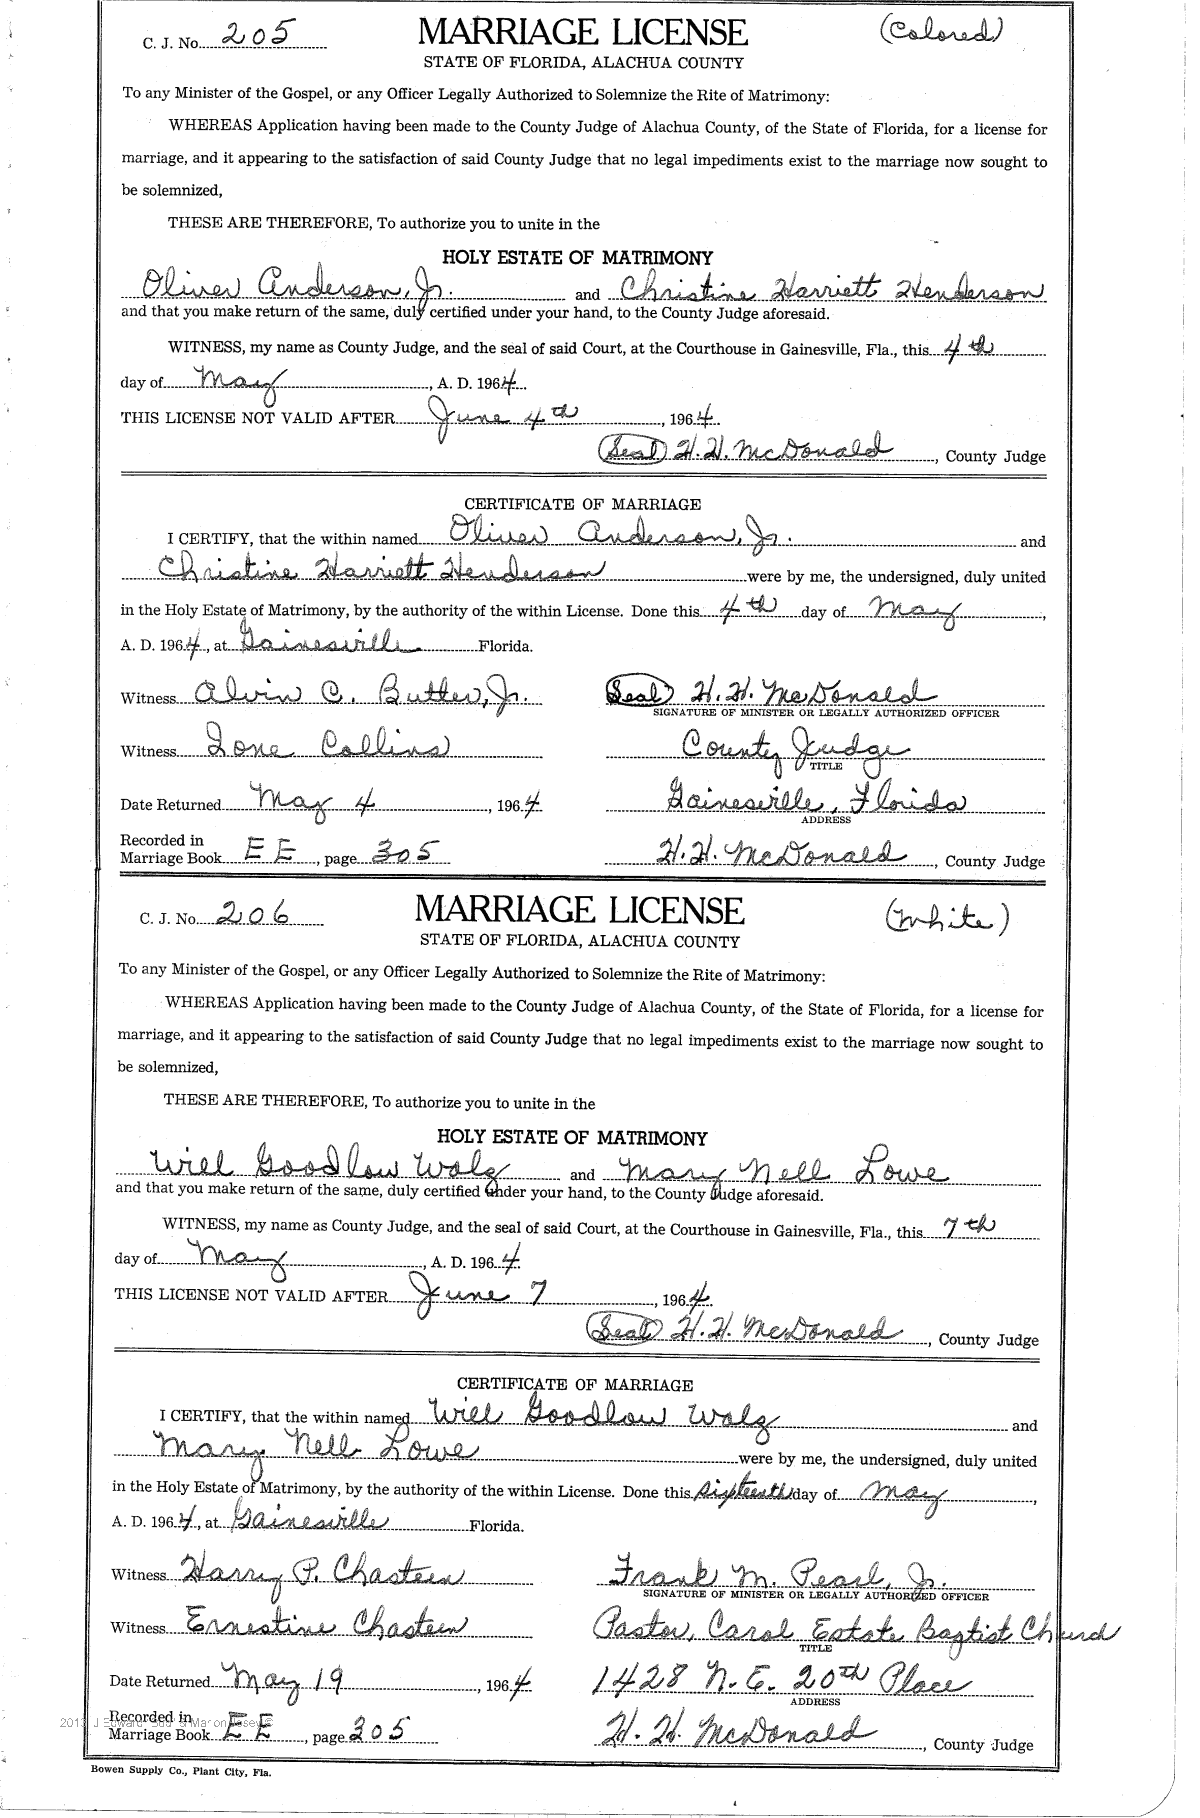 C. J. No. 205 MARRIAGE LICENSE (Colored)
STATE OF FLORIDA, ALACHUA COUNTY
To any Minister of the Gospel, or any Officer Legally Authorized to Solemnize the Rite of Matrimony:
WHEREAS Application having been made to the County Judge of Alachua County, of the State of Florida, for a license for
marriage, and it appearing to the satisfaction of said County Judge that no legal impediments exist to the marriage now sought to
be solemnized,
THESE ARE THEREFORE, To authorize you to unite in the
HOLY ESTATE OF MATRIMONY
Oliver Anderson, Jr. and Christine Harriett Henderson
and that you make return of the same, duly certified under your hand, to the County Judge aforesaid.
WITNESS, my name as County Judge, and the seal of said Court, at the Courthouse in Gainesville, Fla., this 4th
day of May, A. D. 1964.
THIS LICENSE NOT VALID AFTER June 4th, 1964.
(Seal) H. H. McDonald, County Judge
CERTIFICATE OF MARRIAGE
I CERTIFY, that the within named Oliver Anderson, Jr. and
Christine Harriett Henderson were by me, the undersigned, duly united
in the Holy Estate of Matrimony, by the authority of the within License. Done this 4th day of May,
A. D. 1964, at Gainesville Florida.
Witness Alvin C. Butler, Jr. (Seal) H. H. McDonald
SIGNATURE OF MINISTER OR LEGALLY AUTHORIZED OFFICER
Witness Ione Collins County Judge
TITLE
Date Returned May 4, 1964 Gainesville, Florida
ADDRESS
Recorded in
Marriage Book EE, page 305 H. H. McDonald, County Judge
C. J. No. 206 MARRIAGE LICENSE (White)
STATE OF FLORIDA, ALACHUA COUNTY
To any Minister of the Gospel, or any Officer Legally Authorized to Solemnize the Rite of Matrimony:
WHEREAS Application having been made to the County Judge of Alachua County, of the State of Florida, for a license for
marriage, and it appearing to the satisfaction of said County Judge that no legal impediments exist to the marriage now sought to
be solemnized,
THESE ARE THEREFORE, To authorize you to unite in the
HOLY ESTATE OF MATRIMONY
Will Goodlow Walz and Mary Nell Lowe
and that you make return of the same, duly certified under your hand, to the County Judge aforesaid.
WITNESS, my name as County Judge, and the seal of said Court, at the Courthouse in Gainesville, Fla., this 7th
day of May, A. D. 1964.
THIS LICENSE NOT VALID AFTER June 7, 1964.
(Seal) H. H. McDonald, County Judge
CERTIFICATE OF MARRIAGE
I CERTIFY, that the within named Will Goodlow Walz and
Mary Nell Lowe were by me, the undersigned, duly united
in the Holy Estate of Matrimony, by the authority of the within License. Done this sixteenth day of May,
A. D. 1964, at Gainesville Florida.
Witness Harry P. Chasteen Frank M. Pearl, Jr.
SIGNATURE OF MINISTER OR LEGALLY AUTHORIZED OFFICER
Witness Ernestine Chasteen Pastor, Carol Estate Baptist Church
TITLE
Date Returned May 19, 1964 1428 N. E. 20th Place
ADDRESS
Recorded in
Marriage Book EE, page 305 H. H. McDonald, County Judge
Bowen Supply Co., Plant City, Fla.